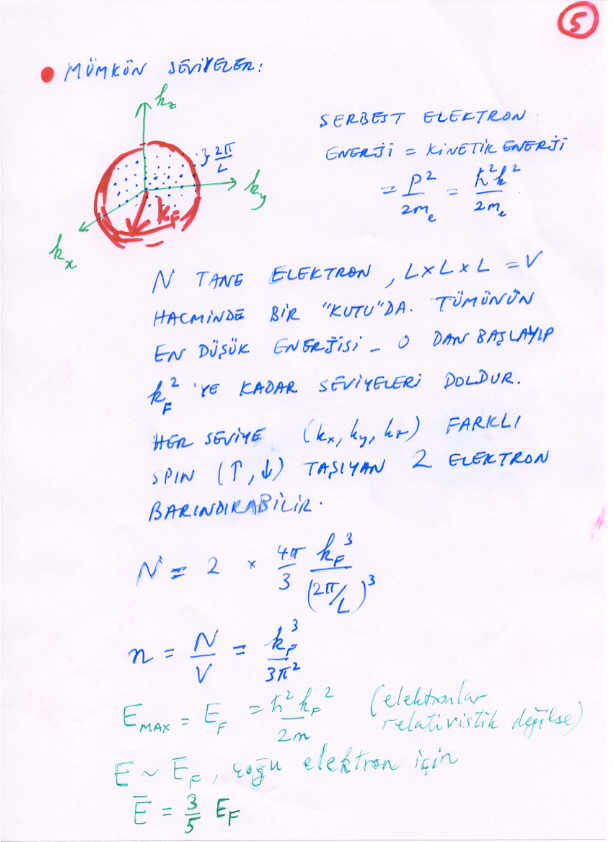 5
• MÜMKÜN SEVİYELER:
kz
} 2π/L
ky
kF
kx
SERBEST ELEKTRON
ENERJİ = KİNETİK ENERJİ
= p²/2mₑ = ħ²k²/2mₑ
N TANE ELEKTRON, L×L×L = V
HACMİNDE BİR "KUTU"DA. TÜMÜNÜN
EN DÜŞÜK ENERJİSİ – 0 DAN BAŞLAYIP
k_F² 'YE KADAR SEVİYELERİ DOLDUR.
HER SEVİYE (kx, ky, kz) FARKLI
SPIN (↑, ↓) TAŞIYAN 2 ELEKTRON
BARINDIRABİLİR.
N = 2 × 4π/3 k_F³/(2π/L)³
n = N/V = k_F³/3π²
E_MAX = E_F = ħ²k_F²/2m (elektronlar
relativistik değilse)
E ~ E_F, çoğu elektron için
Ē = 3/5 E_F